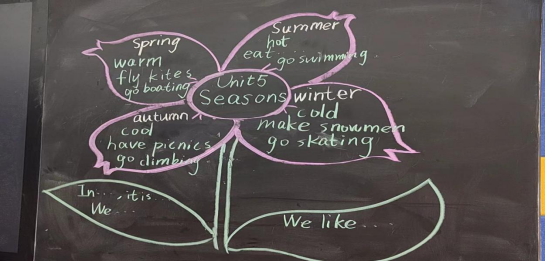 Spring
warm
fly kites
go boating
Summer
hot
eat go swimming.
Unit5
Seasons
autumn
cool
have picnics
go climbing
winter
cold
make snowmen
go skating
In...., it is
We....
We like....